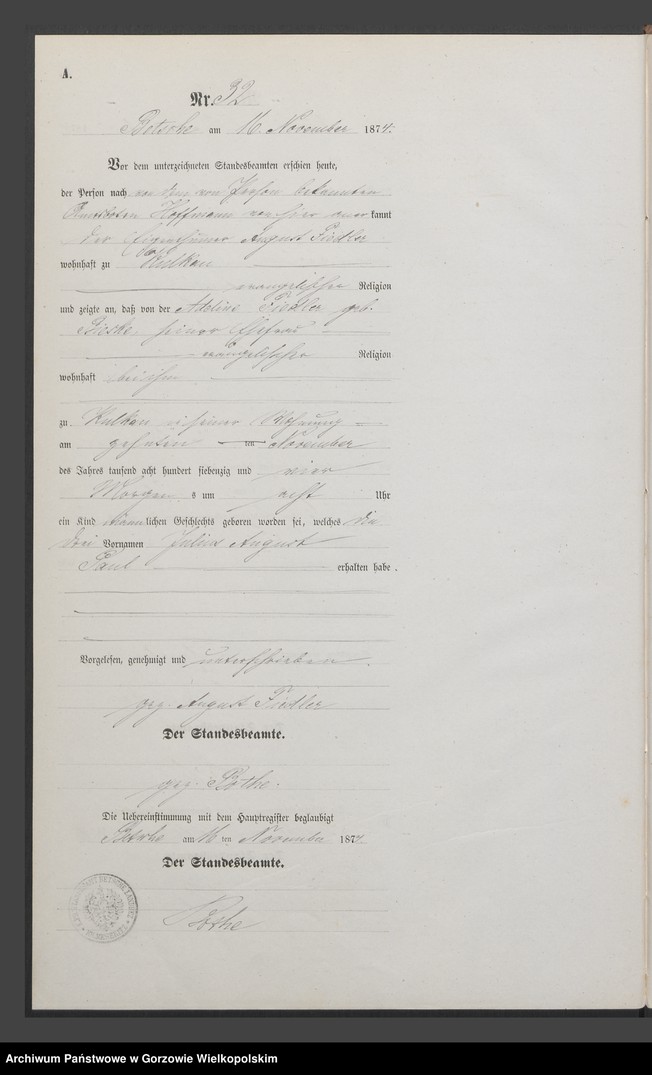 A.
Nr. 32
Betsche am 16. November 1874.
Vor dem unterzeichneten Standesbeamten erschien heute,
der Person nach von dem von Person bekannten
Hoffmann von hier aner kannt
der Eigenthümer August Fiedler
wohnhaft zu Kulkau
evangelischer Religion
und zeigte an, daß von der Adeline Fiedler geb.
seiner Ehefrau
evangelischer Religion
wohnhaft bei ihm
zu Kulkau in seiner Wohnung
am zehnten ten November
des Jahres tausend acht hundert siebenzig und vier
Morgen s um acht Uhr
ein Kind männlichen Geschlechts geboren worden sei, welches die
drei Vornamen Julius August
Paul erhalten habe.
Vorgelesen, genehmigt und unterschrieben.
gez. August Fiedler
Der Standesbeamte.
gez. Bothe.
Die Uebereinstimmung mit dem Hauptregister beglaubigt
Betsche am 16 ten November 1874
Der Standesbeamte.
Bothe
Archiwum Państwowe w Gorzowie Wielkopolskim